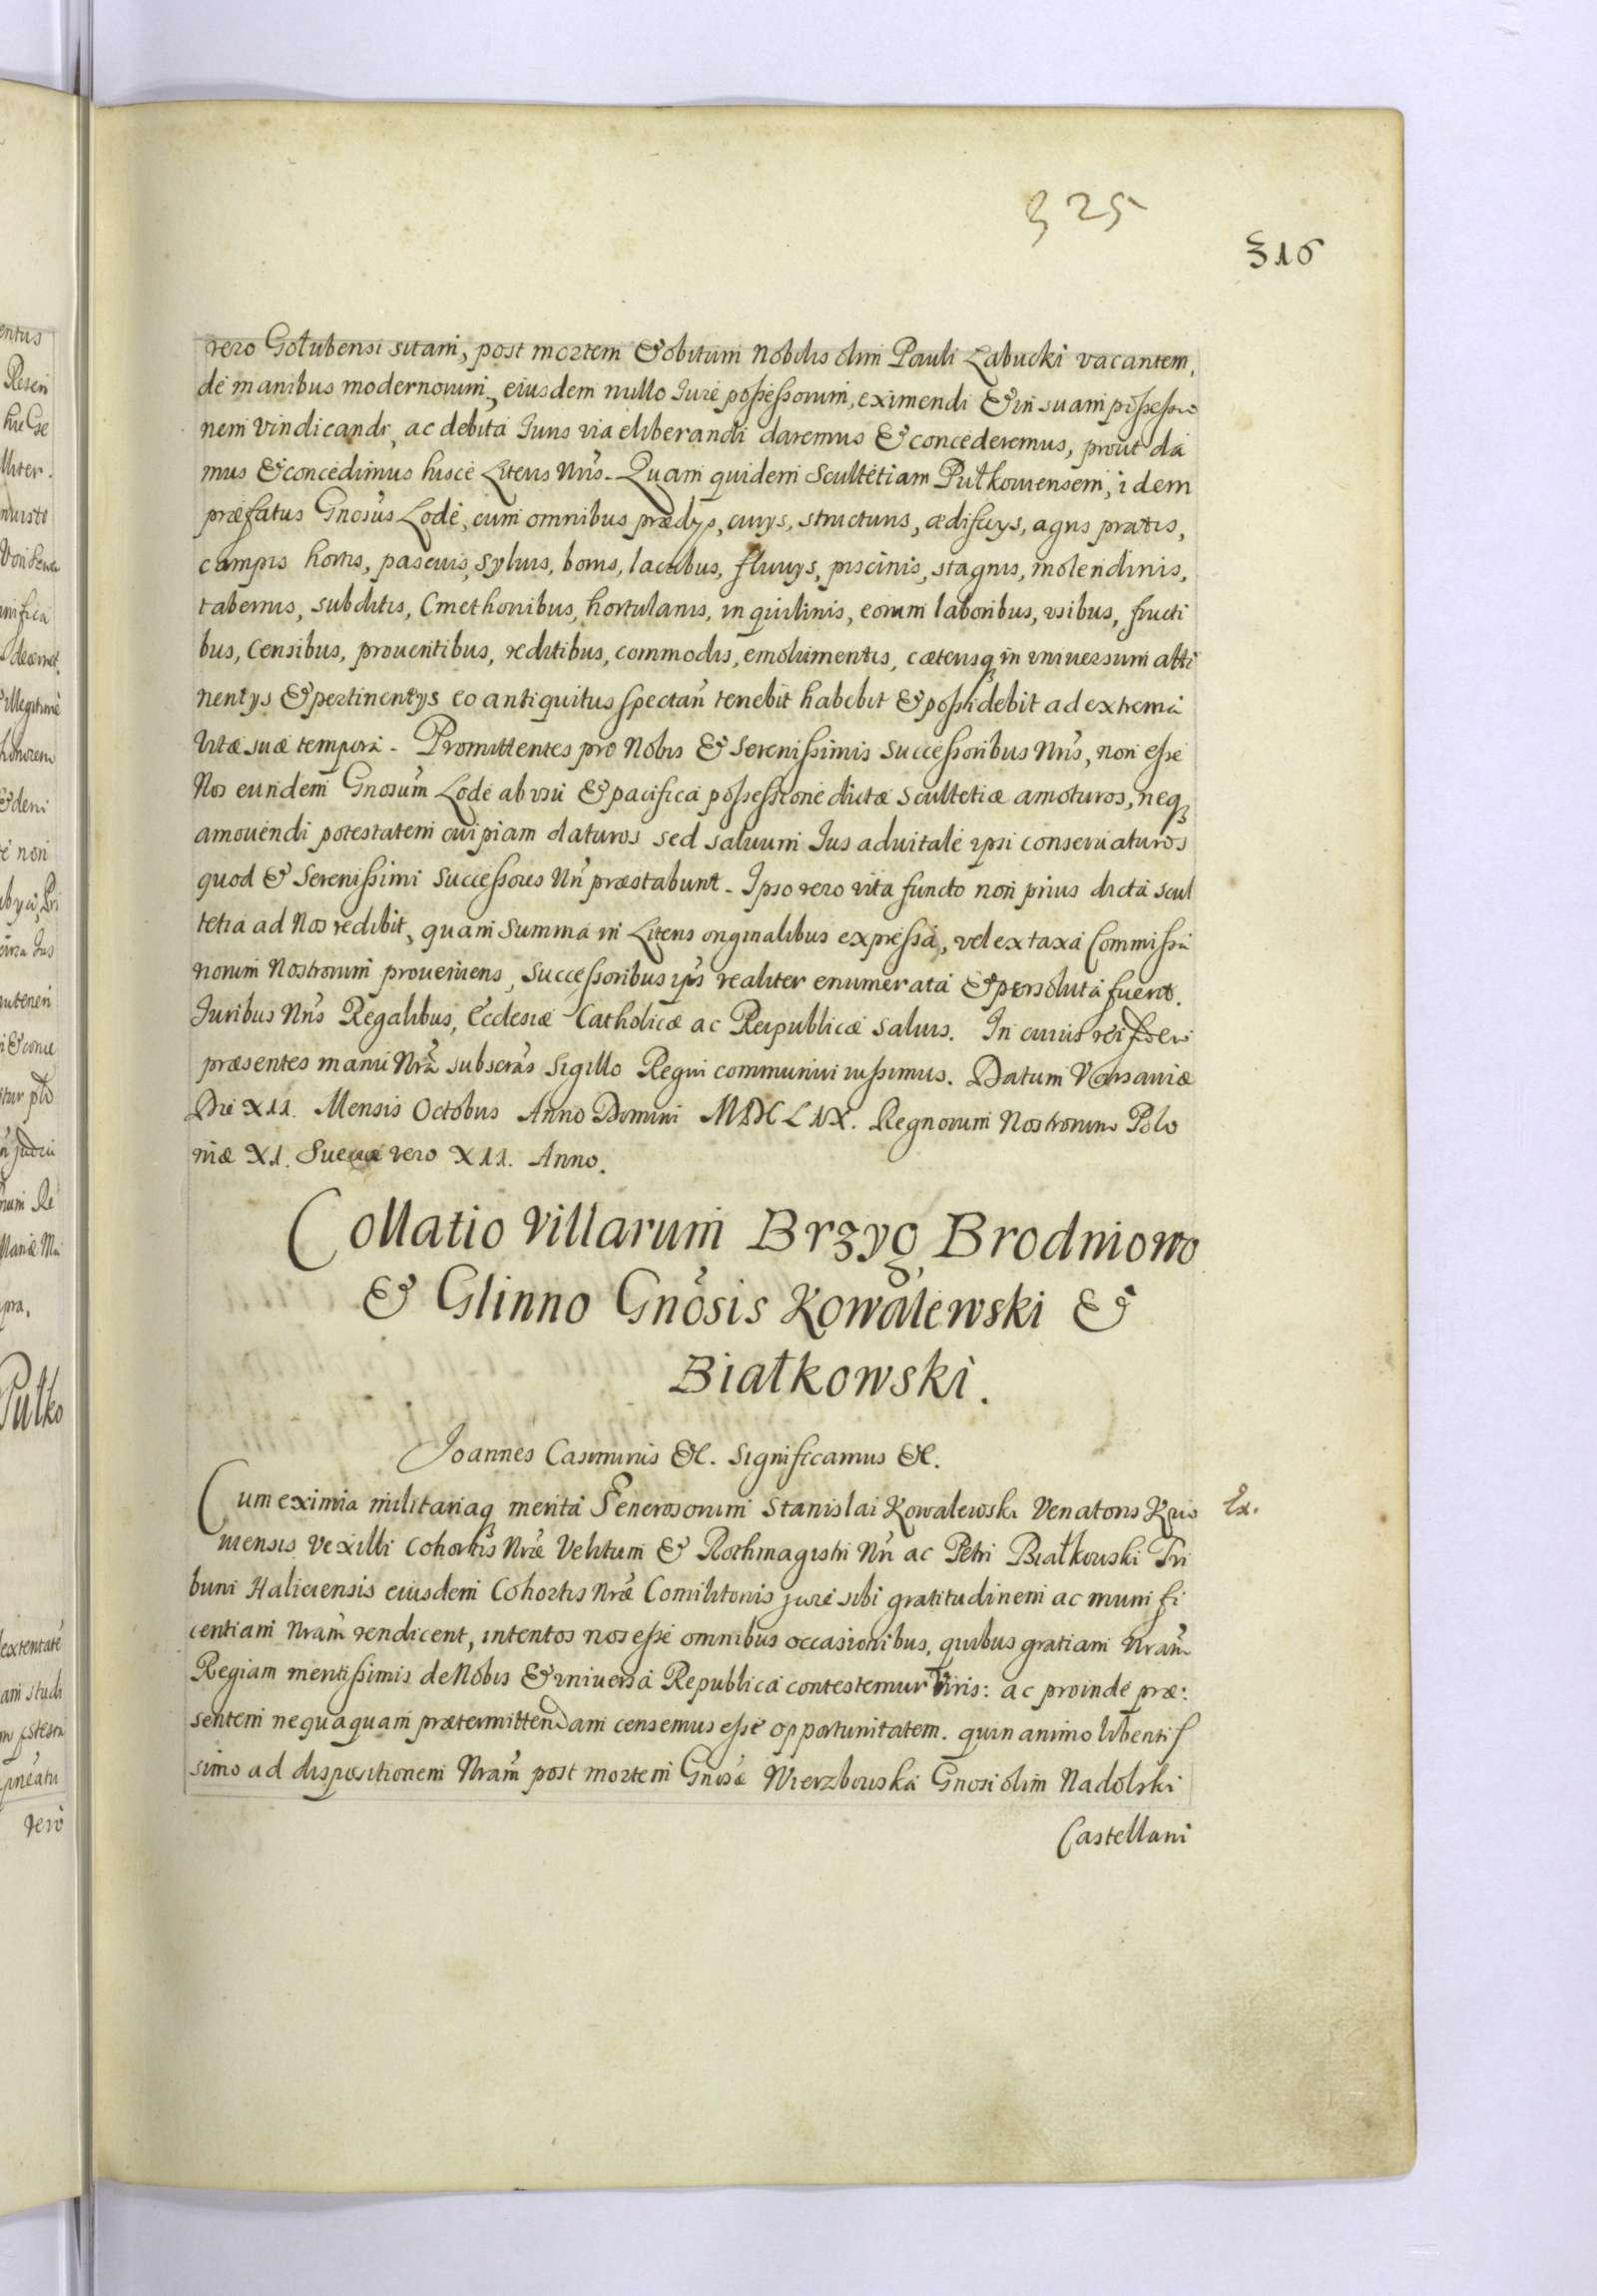 325
316
vero Gołubensi sitam, post mortem & obitum Nobilis olim Pauli Łabucki vacantem,
de manibus modernorum, eiusdem nullo Iure possessorum, eximendi & in suam possessio
nem vindicandi, ac debita Iuris via eliberandi daremus & concederemus, prout da
mus & concedimus hisce Literis Nr̃is. Quam quidem Scultetiam Pułkowiensem, idem
præfatus Gnosus Lode, cum omnibus prædys, curys, structuris, ædificys, agris pratis,
campis hortis, pascuis, syluis, boris, lacubus, fluuys, piscinis, stagnis, molendinis,
tabernis, subditis, Cmethonibus, hortulanis, inquilinis, eorum laboribus, vsibus, fructi
bus, Censibus, prouentibus, reditibus, commodis, emolumentis, cæterisq in vniuersum atti
nentys & pertinentys eo antiquitus spectan̄ tenebit habebit & possidebit ad extrema
vitæ suæ tempora. Promittentes pro Nobis & Serenissimis Successoribus Nr̃is, non esse
Nos eundem Gnosum Lode ab vsu & pacifica possessione dictæ Scultetiæ amoturos, neq
amouendi potestatem cuipiam daturos sed saluum Ius aduitale ipsi conseruaturos
quod & Serenissimi Successores Nr̃i præstabunt. Ipso vero vita functo non prius dicta Scul
tetia ad Nos redibit, quam Summa in Literis originalibus expressa, vel ex taxa Commissa
riorum Nostrorum proueniens, Successoribus ipsis realiter enumerata & persoluta fuerit.
Iuribus Nr̃is Regalibus, Ecclesiæ Catholicæ ac Reipublicæ saluis. In cuius rei fidem
præsentes manu Nr̃a subscr̃as Sigillo Regni communiri iussimus. Datum Varsaviæ
Die XII. Mensis Octobris Anno Domini MDCLIX. Regnorum Nostrorum Polo
niæ XI. Sueciæ vero XII. Anno.
Collatio Villarum Brzyg, Brodniowo
& Glinno Gnosis Kowalewski &
Białkowski.
Joannes Casimirus &c. Significamus &c.
Cum eximia militariaq merita Generosorum Stanislai Kowalewski Venatoris Kijo Ex.
uiensis Vexilli Cohortis Nr̃æ Velitum & Rothmagistri Nr̃i ac Petri Białkowski Tri
buni Haliciensis eiusdem Cohortis Nr̃æ Comilitonis jure sibi gratitudinem ac munifi
centiam Nr̃am vendicent, intentos nos esse omnibus occasionibus, quibus gratiam Nr̃am
Regiam meritissimis de Nobis & vniuersa Republica contestemur Viris: ac proinde præ:
sentem nequaquam prætermittendam censemus esse opportunitatem. quin animo libentis
simo ad dispositionem Nr̃am post mortem Gnosæ Wierzbowska Gnosi olim Nadolski
Castellani